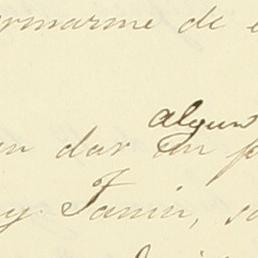 rmarme de e
algun
n dar un p
y Janin, s